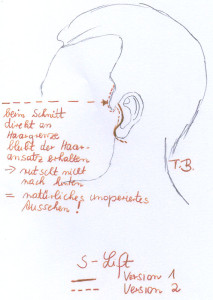 beim Schnitt
direkt an
Haargrenze
bleibt der Haar-
ansatz erhalten
→ rutscht nicht
nach hinten
= natürliches unoperiertes
Aussehen!
T.B.
S-Lift
Version 1
Version 2